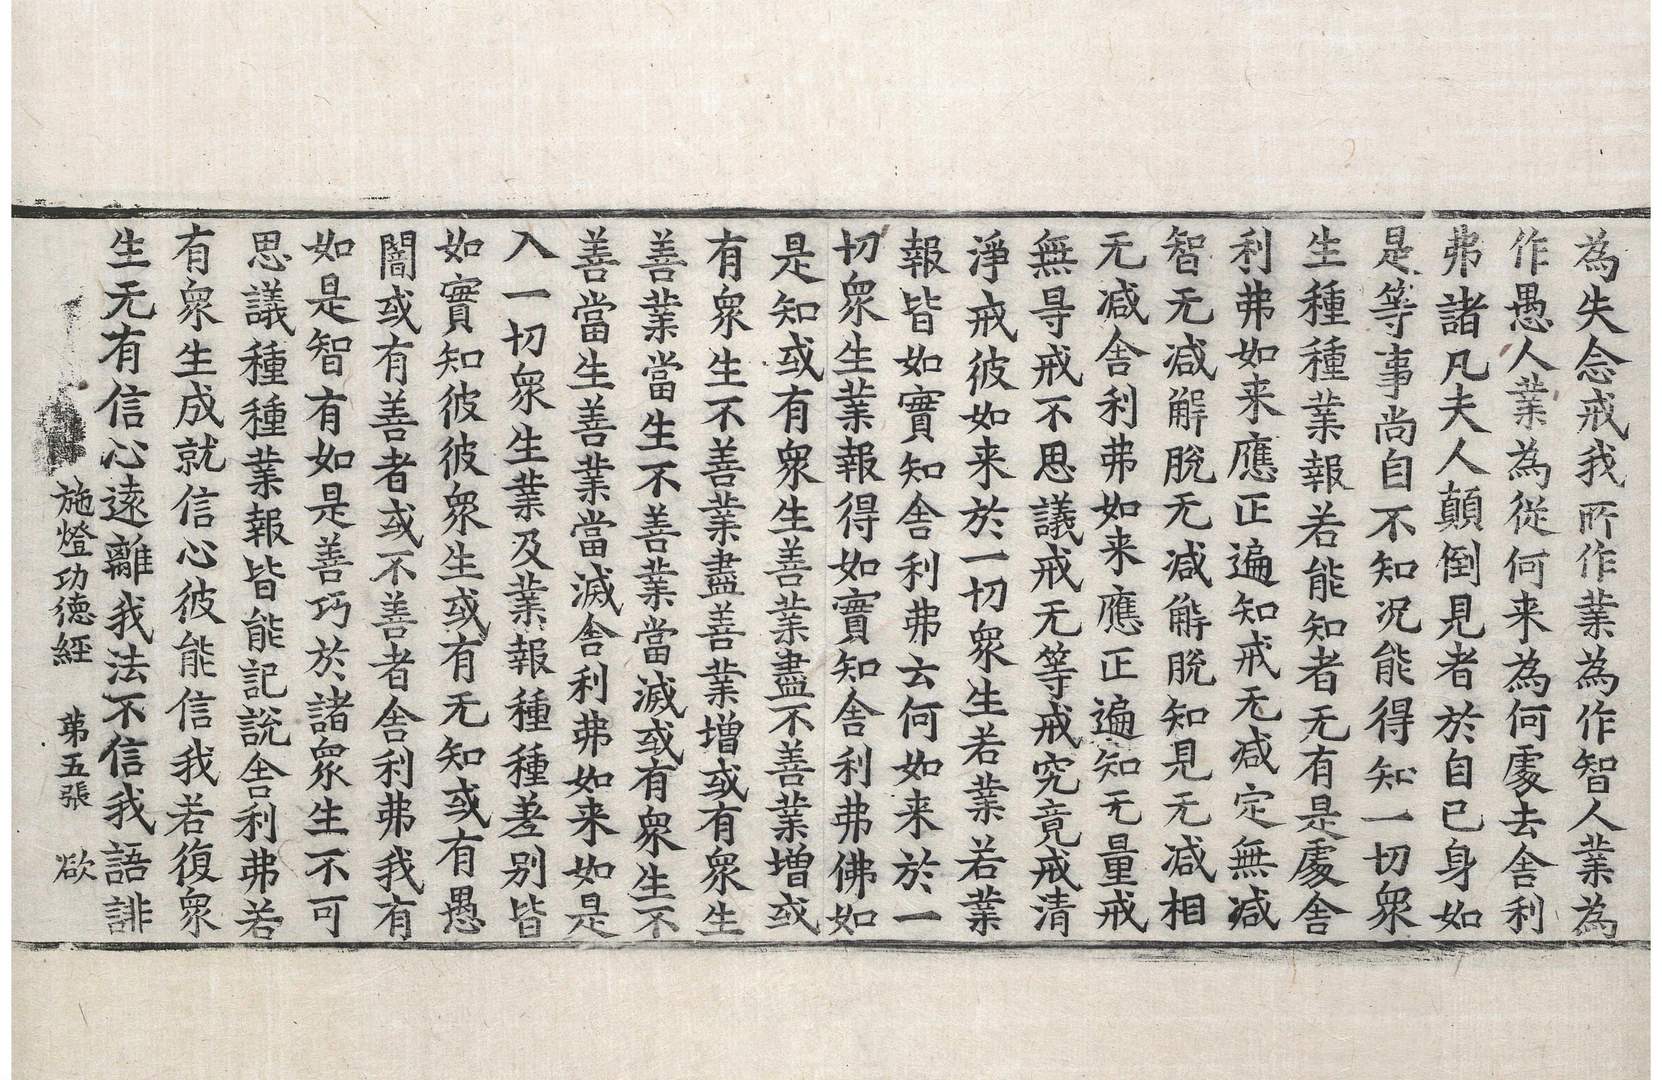 為失念戒我所作業為作智人業為
作愚人業為從何来為何處去舎利
弗諸凡夫人顛倒見者於自已身如
是等事尚自不知况能得知一切眾
生種種業報若能知者无有是處舎
利弗如来應正遍知戒无减定無减
智无减解脫无减解脫知見无减相
无减舎利弗如来應正遍知无量戒
無㝵戒不思議戒无等戒究竟戒清
淨戒彼如来於一切眾生若業若業
報皆如實知舎利弗云何如来於一
切眾生業報得如實知舎利弗佛如
是知或有眾生善業盡不善業增或
有眾生不善業盡善業增或有眾生
善業當生不善業當滅或有眾生不
善當生善業當滅舎利弗如来如是
入一切眾生業及業報種種差别皆
如實知彼彼眾生或有无知或有愚
闇或有善者或不善者舎利弗我有
如是智有如是善巧於諸眾生不可
思議種種業報皆能記說舎利弗若
有眾生成就信心彼能信我若復眾
生无有信心遠離我法不信我語誹
施燈功徳經　苐五張　欲